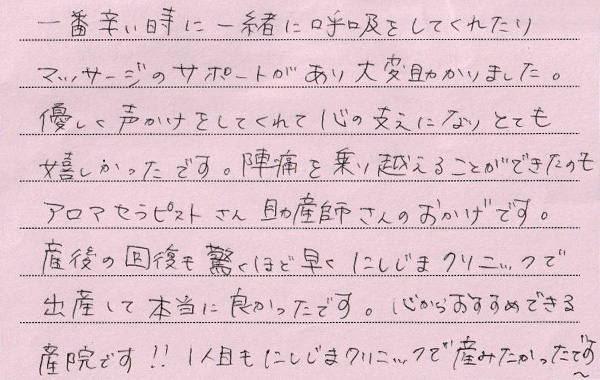 一番辛い時に一緒に呼吸をしてくれたり
マッサージのサポートがあり大変助かりました。
優しく声かけをしてくれて心の支えになりとても
嬉しかったです。陣痛を乗り越えることができたのも
アロマセラピストさん助産師さんのおかげです。
産後の回復も驚くほど早くにしじまクリニックで
出産して本当に良かったです。心からおすすめできる
産院です!! 1人目もにしじまクリニックで産みたかったです〜